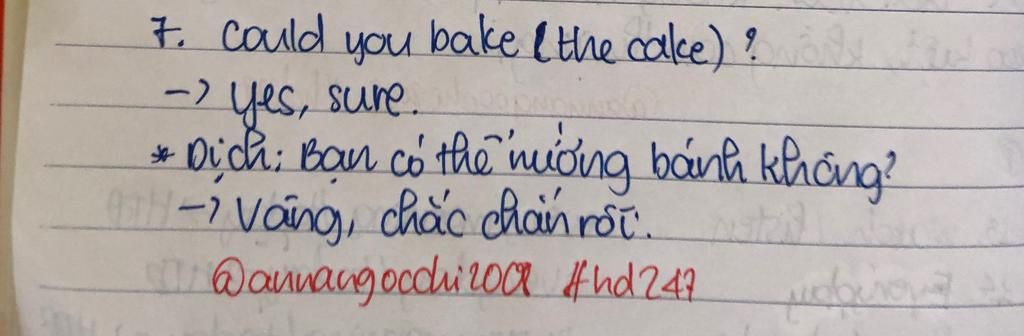 7. Could you bake (the cake)?
-> Yes, sure.
* Dịch: Bạn có thể nướng bánh không?
-> Vâng, chắc chắn rồi.
#hd247